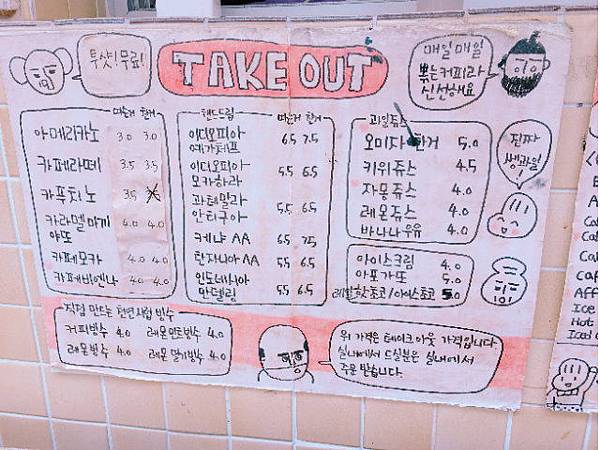 투샷! 무료!
TAKE OUT
매일매일
뽑는 커피라
신선해요
따는거 찬거
아메리카노 3.0 3.0
카페라떼 3.5 3.5
카푸치노 3.5
카라멜마끼
야또 4.0 4.0
카페모카 4.0 4.0
카페비엔나 4.0 4.0
핸드드립 따는거 찬거
이디오피아
예가치프 6.5 7.5
이디오피아
모카하라 5.5 6.5
과테말라
안티구아 5.5 6.5
케냐 AA 6.5 7.5
탄자니아 AA 5.5 6.5
인도네시아
만델링 5.5 6.5
과일쥬스
오미자 찬거 5.0
키위쥬스 4.5
자몽쥬스 4.0
레몬쥬스 4.0
바나나우유 4.0
진짜
생과일!
아이스크림 4.0
아포가또 5.0
리얼핫초코/아이스초코 5.0
직접 만드는 천연시럽 빙수
커피빙수 4.0 레몬민트빙수 4.0
레몬빙수 4.0 레몬딸기빙수 4.0
위 가격은 테이크아웃 가격입니다
실내에서 드실분은 실내에서
주문 받습니다.